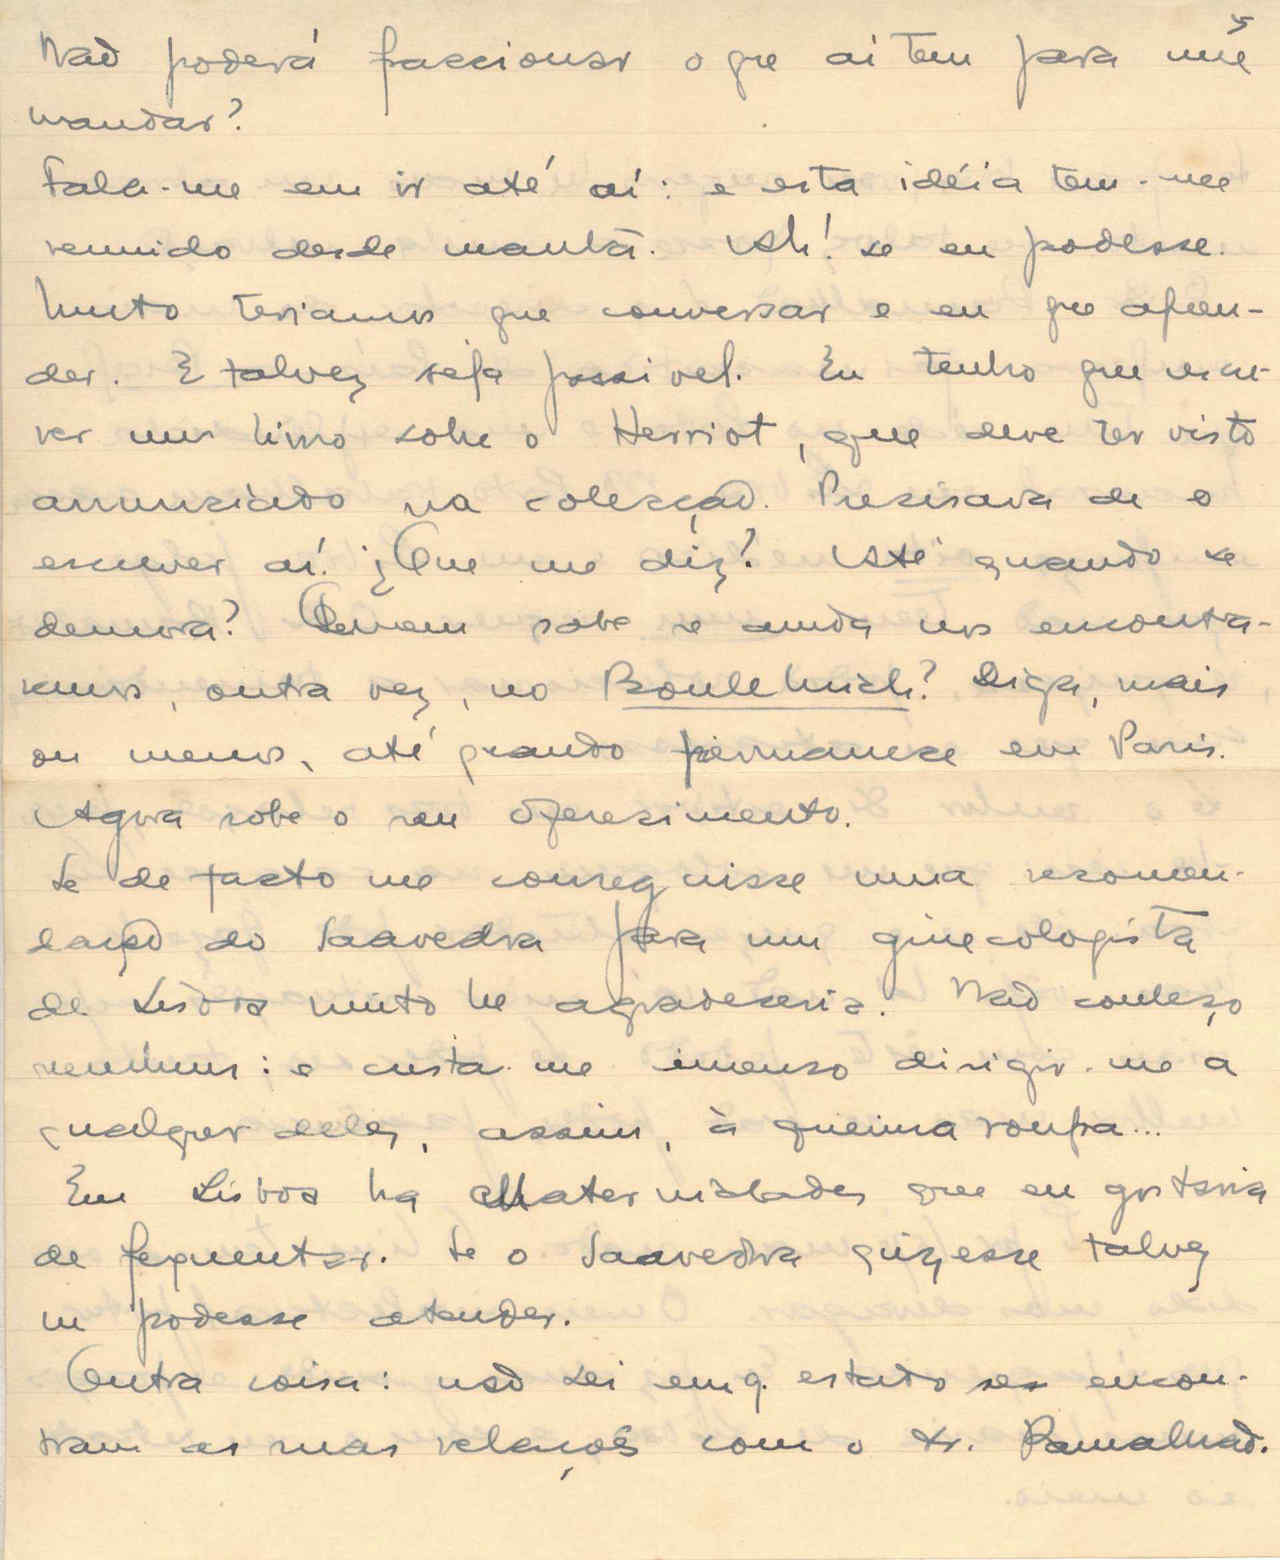 5
Não poderá fraccionar o que aí tem para me
mandar?
Fala-me em ir até aí: e esta idéia tem-me
remuido desde manhã. Ah! se eu podesse.
Muito teriamos que conversar e eu que apren-
der. E talvez seja possivel. Eu tenho que escre-
ver um livro sobre o Herriot, que deve ter visto
anunciado na colecção. Precisava de o
escrever aí. ¿Que me diz? Até quando se
demora? Quem sabe se ainda nos encontra-
remos, outra vez, no Boul Mich? Diga, mais
ou menos, até quando permanece em Paris.
Agora sobre o seu oferecimento.
Se de facto me conseguisse uma recomen-
dação do Saavedra para um ginecologista
de Lisboa muito lhe agradeceria. Não conheço
nenhum: e custa-me imenso dirigir-me a
qualquer deles, assim, à queima roupa...
Em Lisboa ha Maternidades que eu gostaria
de frequentar. Se o Saavedra quizesse talvez
m podesse atender.
Outra coisa: não sei em q. estado se encon-
tram as suas relações com o Sr. Ramalhão.